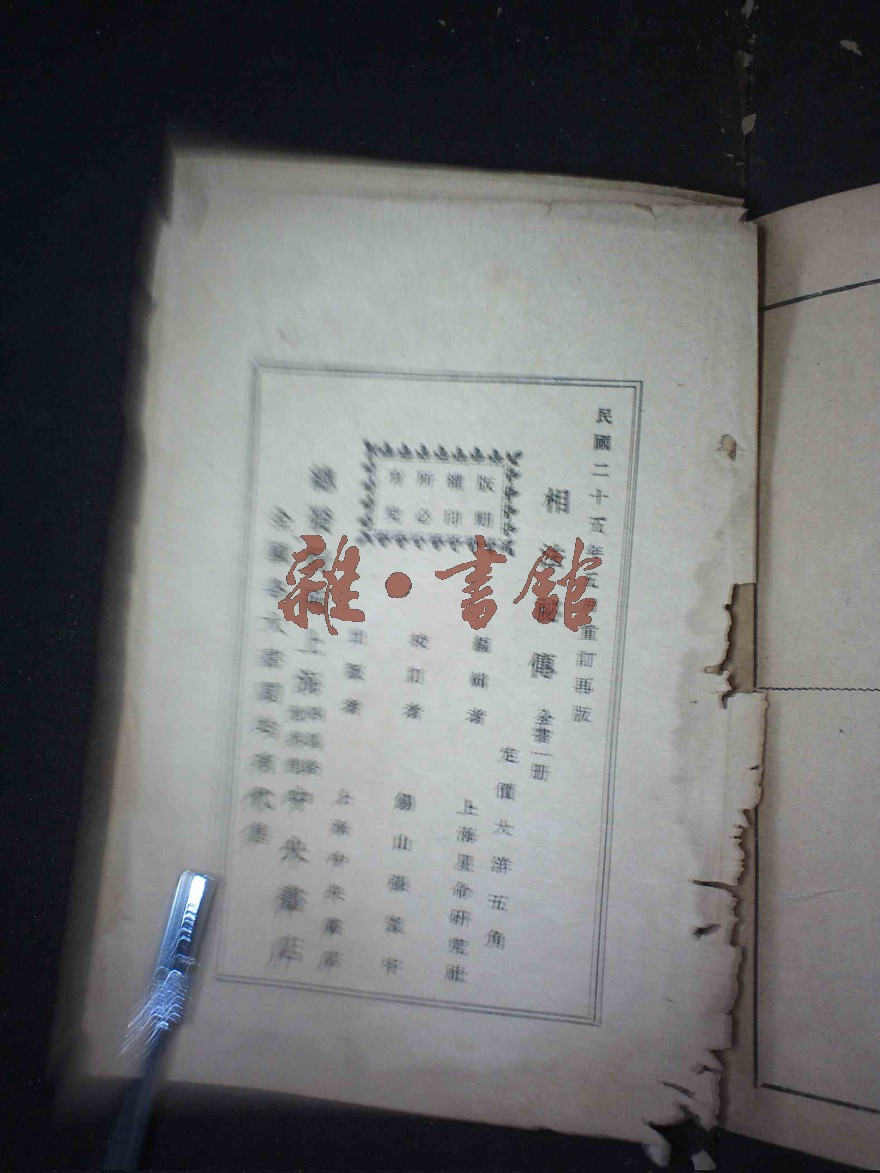 民國二十五年五月重訂再版
相法秘傳 全書一册
定價大洋五角
編輯者 上海星命研究社
校訂者 錫山張
出版者 上海中央書店
版權所有
翻印必究
總發行所 上海 中央書店
全國各大書局均有代售
雜·書館